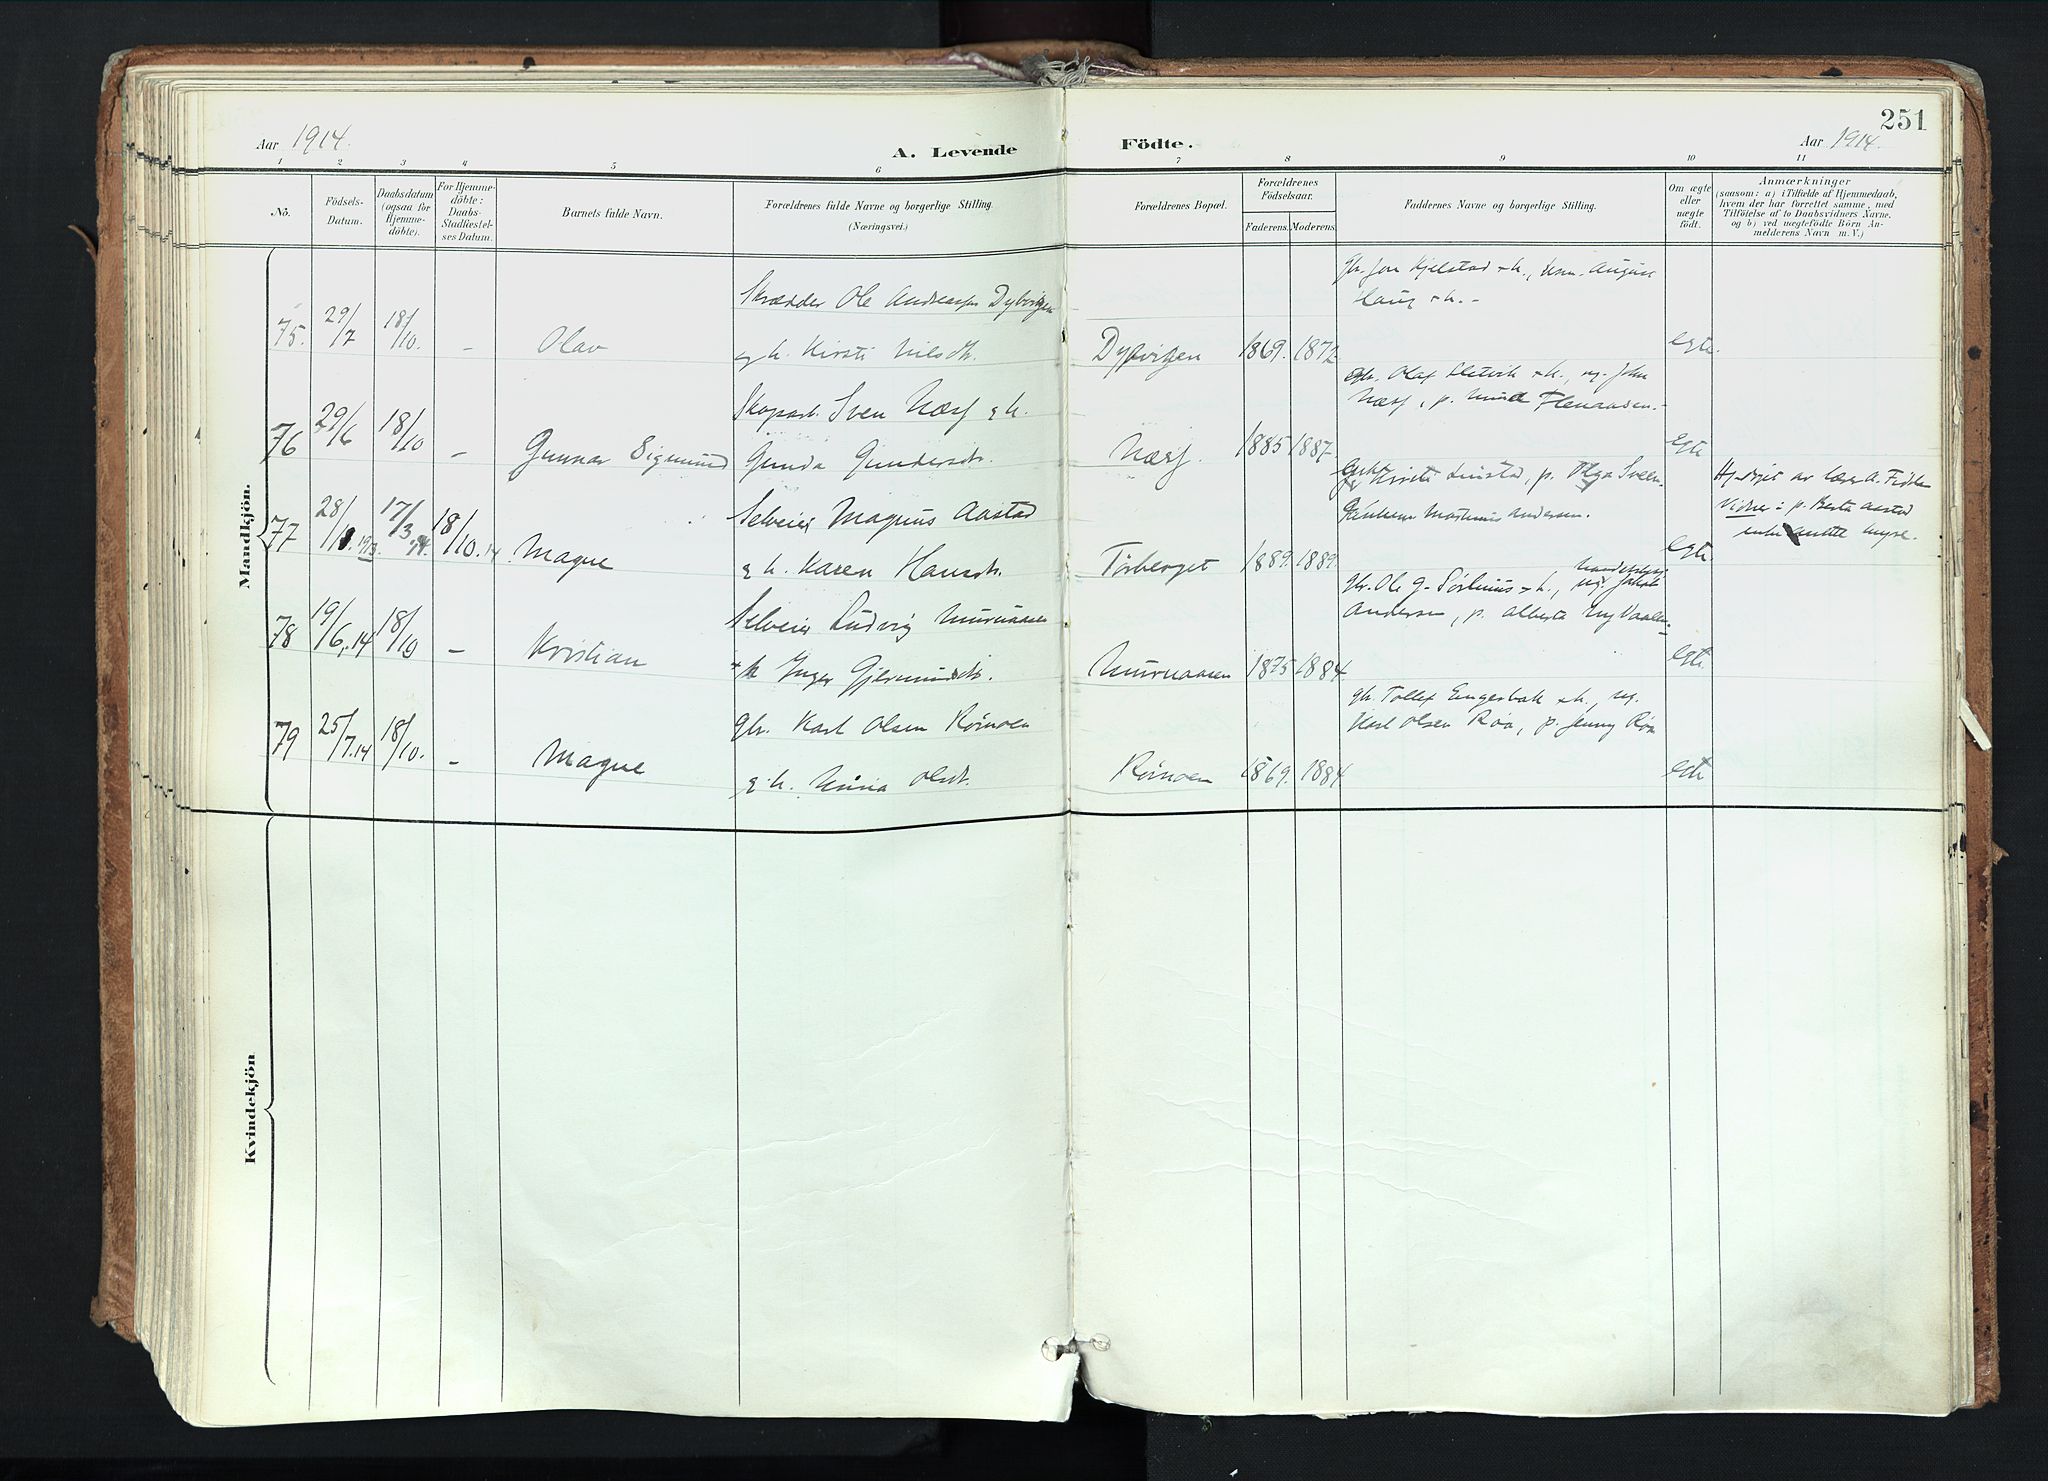 251
Aar 1914
A. Levende Födte.
Aar 1914.
1 2 3 4 5 6 7 8 9 10 11
No.
Födsels-Datum.
Daabsdatum (ogsaa for Hjemme-döbte).
For Hjemme-döbte: Daabs-Stadfestel-ses Datum.
Barnets fulde Navn.
Forældrenes fulde Navne og borgerlige Stilling.
(Næringsvei.)
Forældrenes Bopæl.
Forældrenes Födselsaar.
Faderens. Moderens.
Faddernes Navne og borgerlige Stilling.
Om ægte eller uægte födt.
Anmærkninger
(saasom: a) i Tilfælde af Hjemmedaab,
hvem der har forrettet samme, med
Tilföielse af to Daabsvidners Navne,
og b) ved uægtefödte Börn An-
melderens Navn m. V.)
Mandkjön.
75. 29/7 18/10. - Olav
Skrædder Ole Andreassen Dybvigen
og h. Kirsti Nilsdt.
Dybvigen 1869. 1872
gbr. Jon Kjelstad + h., August
Haug + h. -
egte.
76 29/6 18/10 - Gunnar Sigmund
Skoparb. Sven Næss & h.
Gunda Gundersdt.
Næss. 1885 1887
gbr. Olaf h., ug. John
Næss, p.
egte
77 28/ 1913. 17/3 14. 18/10.14 Magne
Selveier Magnus Aastad
& h. Karen Hansdt.
Tørberget 1889. 1889.
Kirsti p. Olga Sveen
Martinius Andersen.
egte.
Hj.døpt av lærer A.
Vidner: p. Berta Aastad
enke Myre.
78 19/6.14 18/10 - Kristian
Selveier Ludvig Murnaasen
+ h Inger Gjermundsdt.
Murnaasen 1875 1884
gbr. Ole G. + h., ug. Jakob
Andersen, p. Alberta
egte.
79 25/7.14 18/10. - Magne
gbr. Karl Olsen Rørmoen
& h. Olsdt.
Rørmoen 1869. 1884
gbr. Tollef Engerbak + h., ug.
Karl Olsen Roa, p. Jenny
egte
Kvindekjön